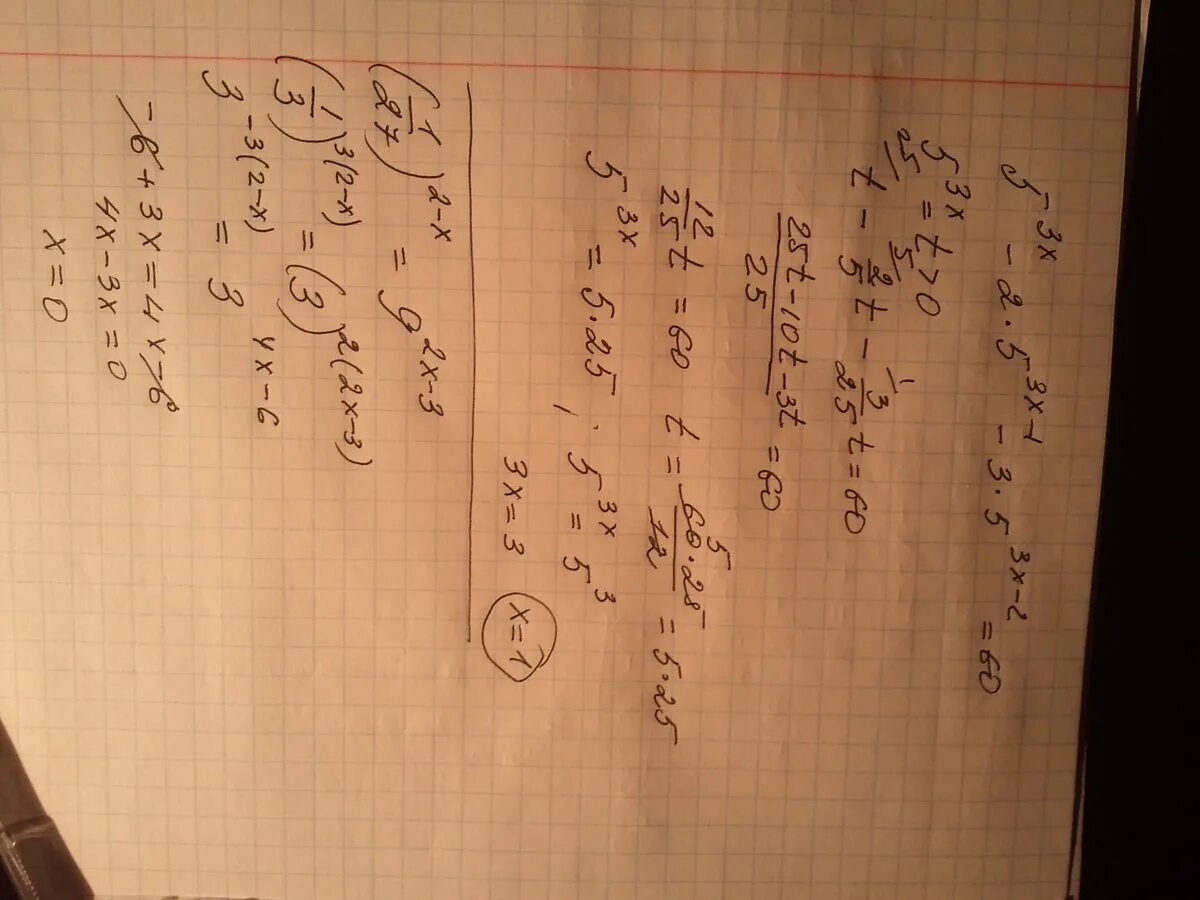 5^{3x} - 2·5^{3x-1} - 3·5^{3x-2} = 60
5^{3x} = t > 0
t - 2/5 t - 3/25 t = 60
(25t - 10t - 3t)/25 = 60
12/25 t = 60 t = (60·25)/12 = 5·25
5^{3x} = 5·25, 5^{3x} = 5^3
3x = 3 x = 1
(1/27)^{2-x} = 9^{2x-3}
(1/3)^{3(2-x)} = (3)^{2(2x-3)}
3^{-3(2-x)} = 3^{4x-6}
-6 + 3x = 4x - 6
4x - 3x = 0
x = 0